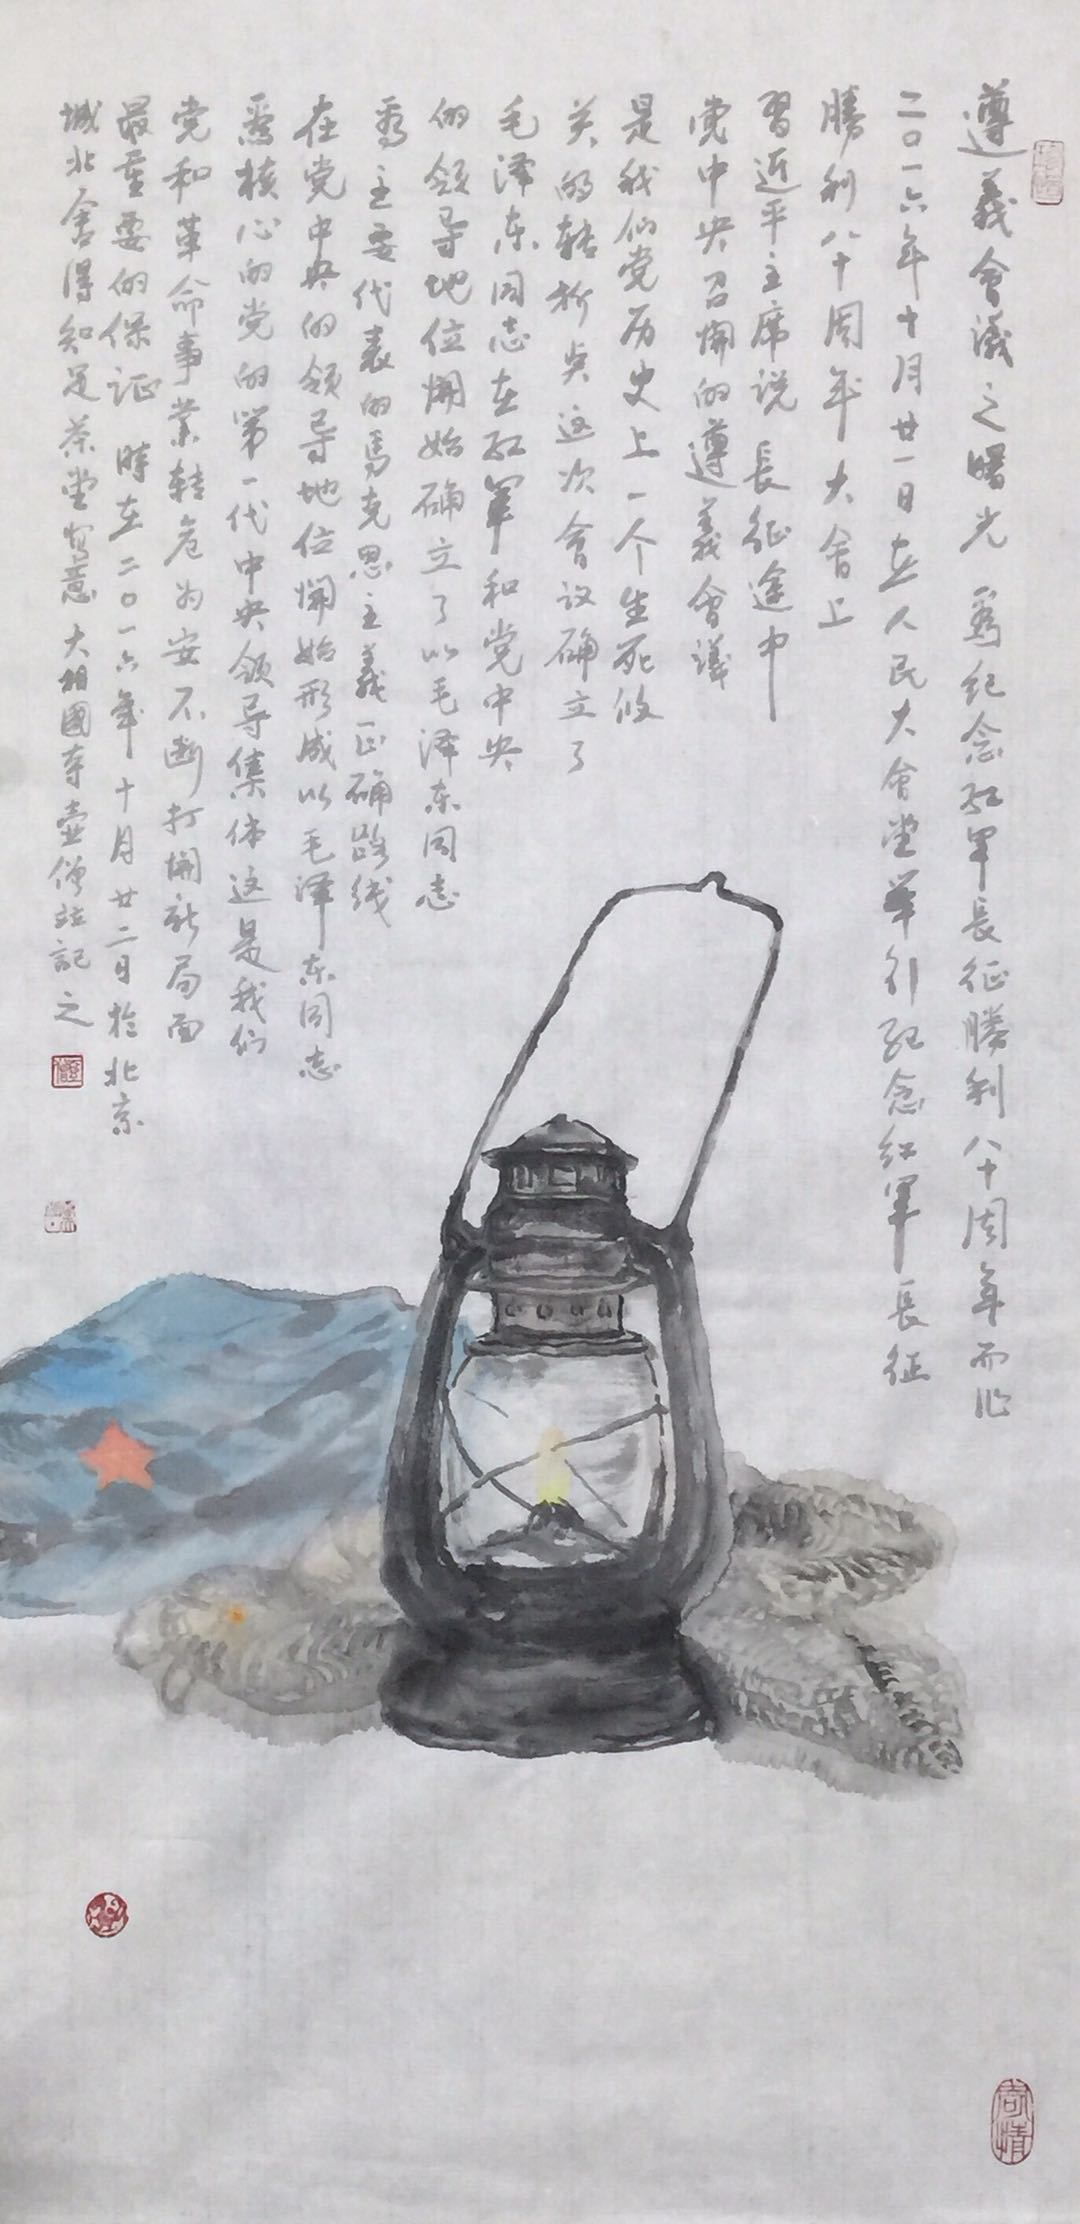 遵義會議之曙光 爲纪念红军長征勝利八十周年而作
二〇一六年十月廿一日在人民大會堂举行纪念红军長征
勝利八十周年大會上
習近平主席说 長征途中
党中央召開的遵義會議
是我们党历史上一个生死攸
关的转折点这次會议确立了
毛泽东同志在红军和党中央
的领导地位開始确立了以毛泽东同志
爲主要代表的馬克思主義正确路线
在党中央的领导地位開始形成以毛泽东同志
爲核心的党的第一代中央领导集体这是我们
党和革命事業转危为安不断打開新局面
最重要的保证 時在二〇一六年十月廿二日於北京
城北舍得知足茶堂寫意 大相國寺壺僧 記之
奇情